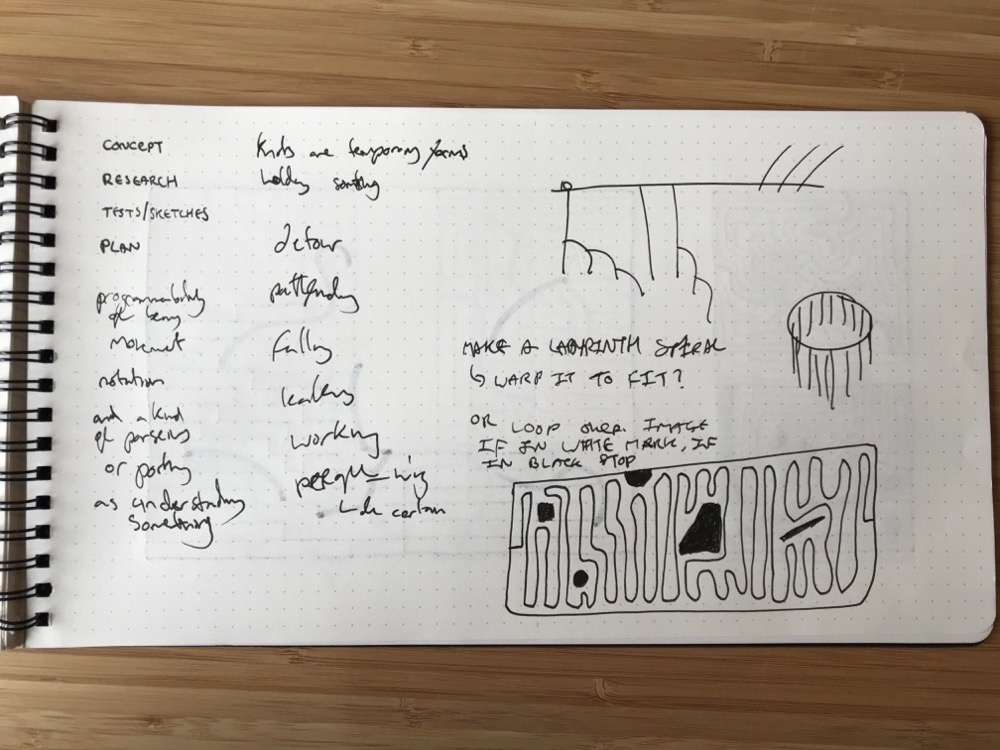 CONCEPT
RESEARCH
TESTS/SKETCHES
PLAN
programmability
of being
Movement
notation
and a kind
of parsing
or
as understanding
Something
Knots are temporary forms
holding something
detour
pathfinding
falling
leaking
working
MAKE A LABYRINTH SPIRAL
↳ WARP IT TO FIT?
OR LOOP OVER IMAGE
IF IN WHITE MARK, IF
IN BLACK STOP